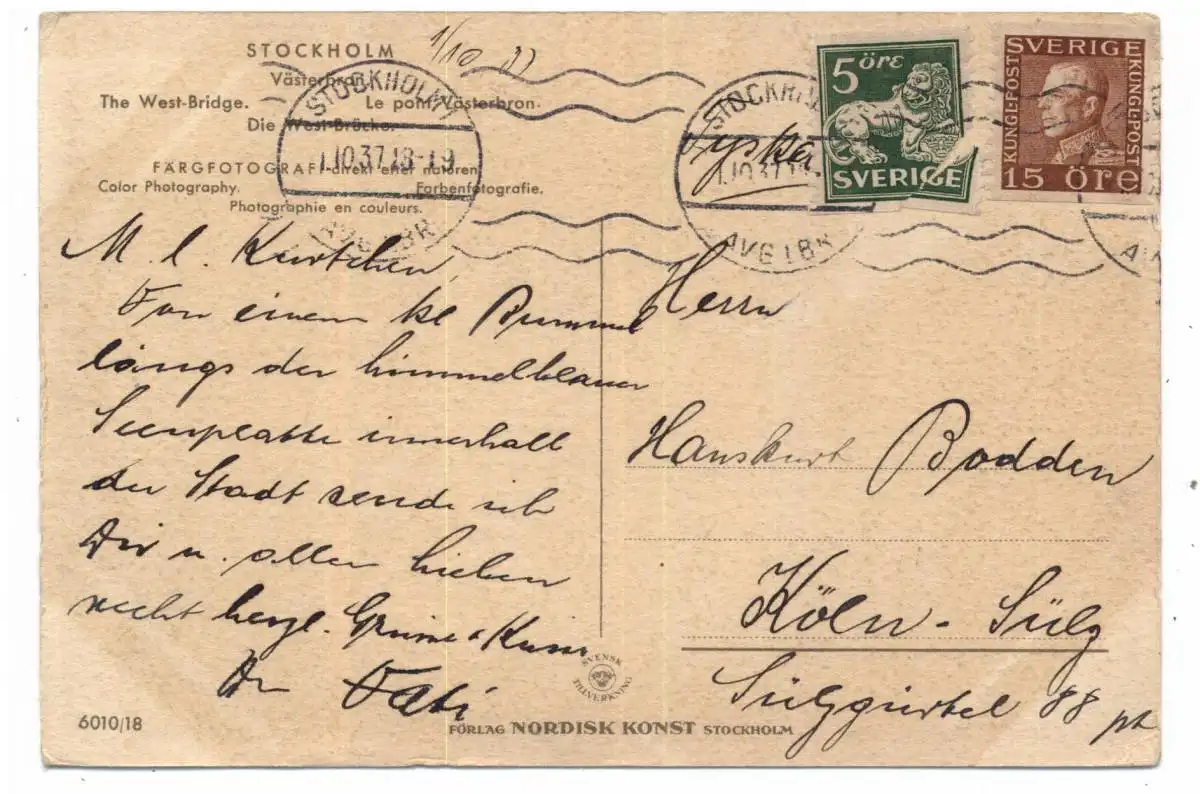 STOCKHOLM
Västerbron
The West-Bridge. Le pont Västerbron.
Die West-Brücke.
FÄRGFOTOGRAFI direkt efter naturen
Color Photography. Farbenfotografie.
Photographie en couleurs.
1/10 37
STOCKHOLM
1.10.37.18-19
AVG 1 BR
STOCKHOLM
1.10.37.18-
AVG 1 BR
5 öre
SVERIGE
SVERIGE
KUNGL·POST
KUNGL·POST
15 öre
Tyskland
M. l. Kurtchen,
Von einem kl Bummel
längs der himmelblauen
Seenplatte innerhalb
der Stadt sende ich
Dir u. allen Lieben
recht herzl. Grüsse & Küsse
Dn Vati
Herrn
Hanskurt Bodden
Köln-Sülz
Sülzgürtel 88 pt
SVENSK
TILLVERKNING
6010/18
FÖRLAG NORDISK KONST STOCKHOLM